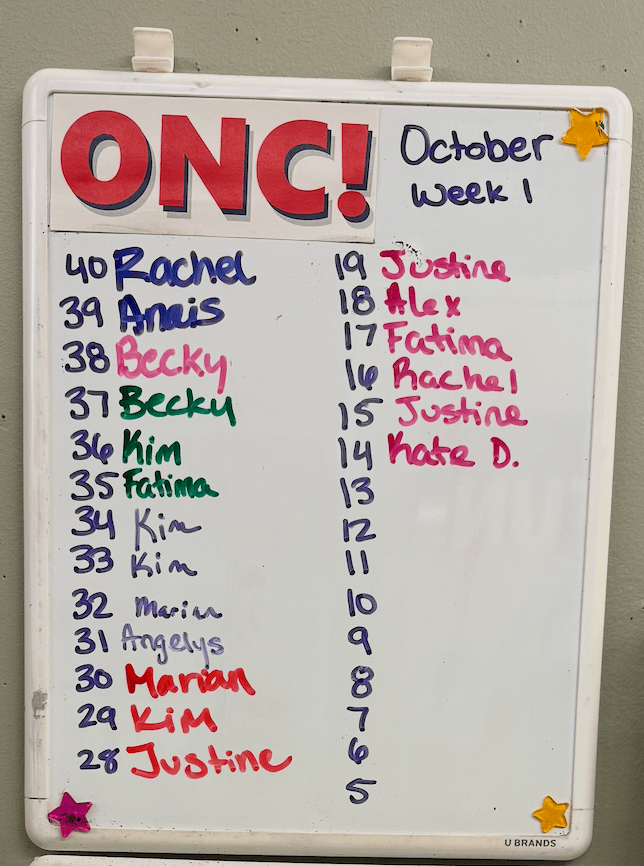 ONC!
October
Week 1
40 Rachel
39 Anais
38 Becky
37 Becky
36 Kim
35 Fatima
34 Kim
33 Kim
32 Marian
31 Angelys
30 Marian
29 Kim
28 Justine
19 Justine
18 Alex
17 Fatima
16 Rachel
15 Justine
14 Kate D.
13
12
11
10
9
8
7
6
5
U BRANDS